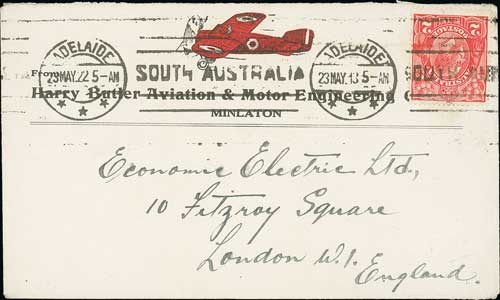 ADELAIDE
23 MAY. 22 5-AM
SOUTH AUSTRALIA
ADELAIDE
23 MAY. 13 5-AM
From
Harry Butler Aviation & Motor Engineering
MINLATON
Economic Electric Ltd.,
10 Fitzroy Square
London W.1.
England.